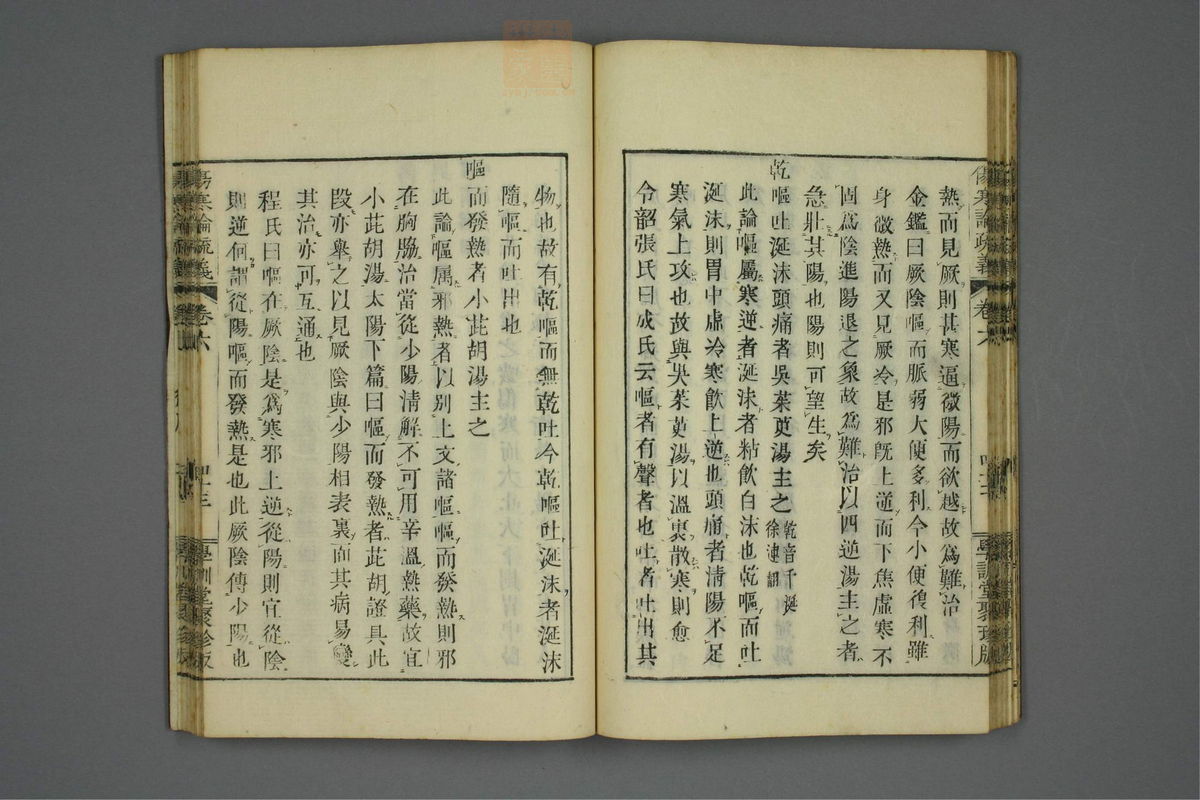 熱而見厥則甚寒逼微陽而欲越故爲難治
金鑑曰厥陰嘔而脈弱大便多利今小便復利雖
身微熱而又見厥冷是邪旣上逆而下焦虛寒不
固爲陰進陽退之象故爲難治以四逆湯主之者
急壯其陽也陽則可望生矣
乾嘔吐涎沫頭痛者吳茱萸湯主之乾音干涎
徐連翻
此論嘔屬寒逆者涎沫者粘飲白沫也乾嘔而吐
涎沫則胃中虛冷寒飲上逆也頭痛者淸陽不足
寒氣上攻也故與吳茱萸湯以溫裏散寒則愈
令韶張氏曰成氏云嘔者有聲者也吐者吐出其
傷寒論疏義
卷六
聚珍版
物也故有乾嘔而無乾吐今乾嘔吐涎沫者涎沫
隨嘔而吐出也
嘔而發熱者小茈胡湯主之
此論嘔属邪熱者以别上文諸嘔嘔而發熱則邪
在胸脇治當從少陽淸解不可用辛溫熱藥故宜
小茈胡湯太陽下篇曰嘔而發熱者茈胡證具此
段亦舉之以見厥陰與少陽相表裏而其病易變
其治亦可互通也
程氏曰嘔在厥陰是爲寒邪上逆從陽則宜從陰
則逆何謂從陽嘔而發熱是也此厥陰傳少陽也
傷寒論疏義
卷六
學訓堂聚珍版